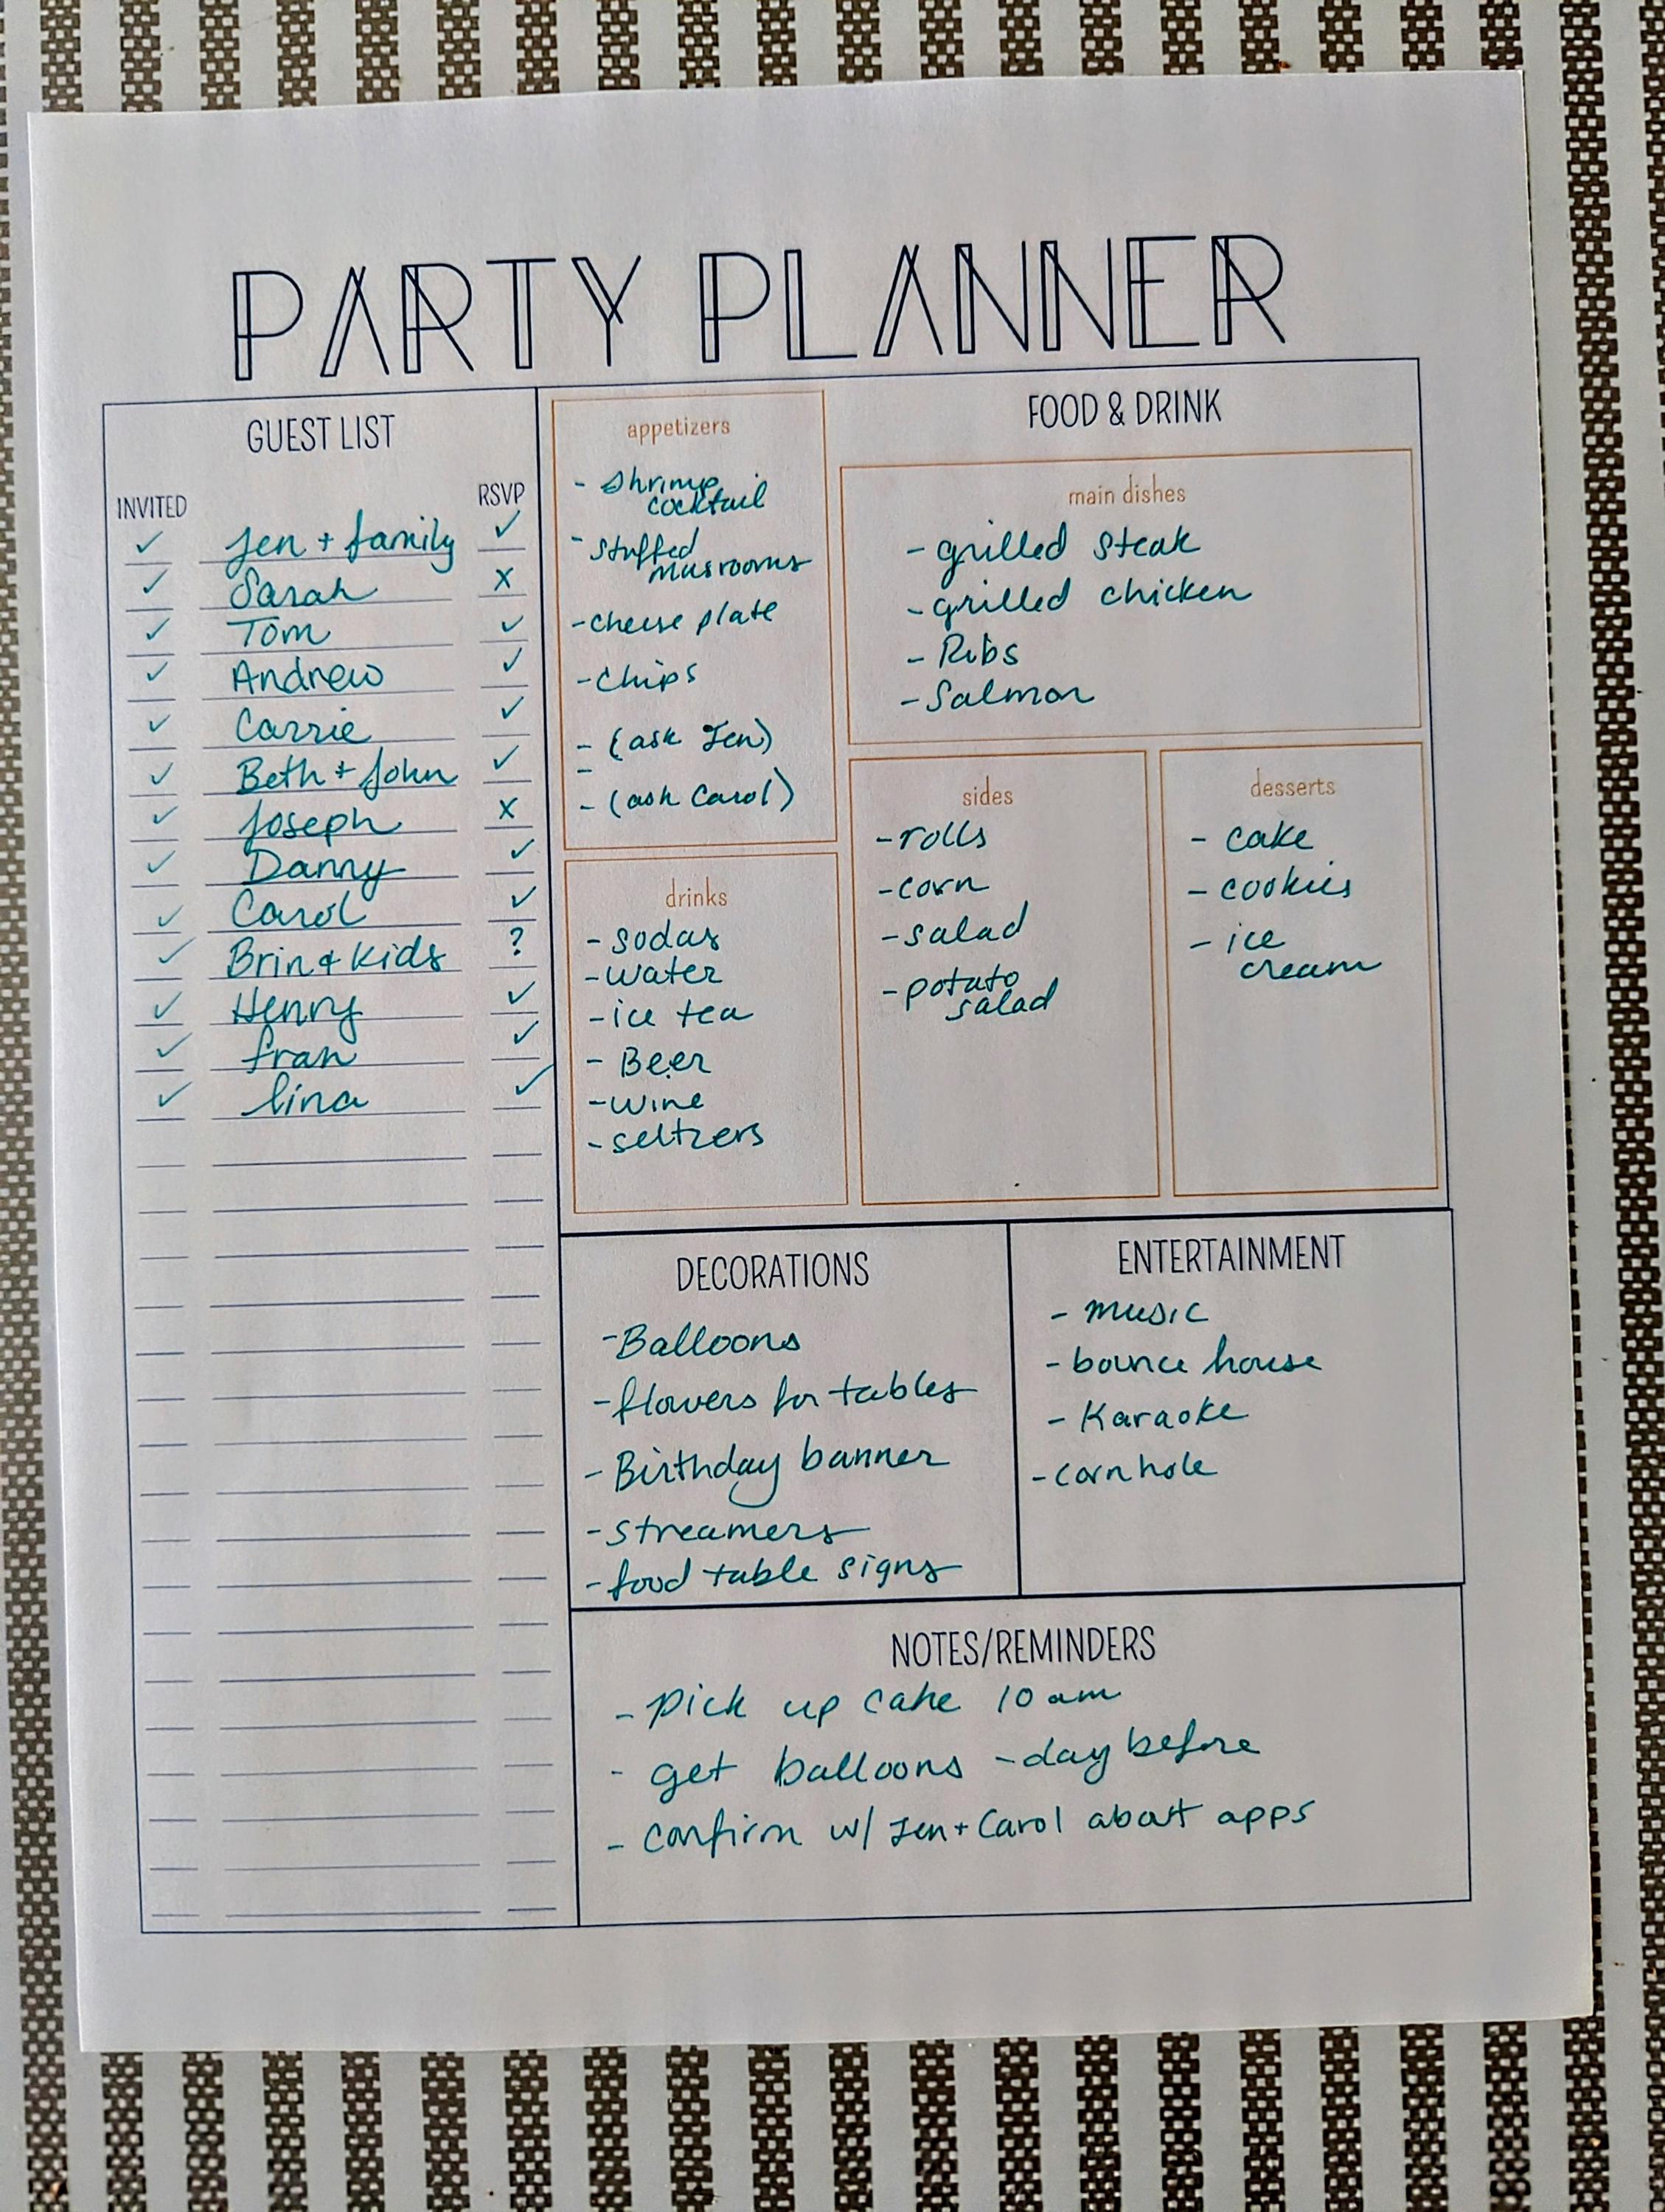 PARTY PLANNER
GUEST LIST
INVITED RSVP
✓ Jen + family ✓
✓ Sarah x
✓ Tom ✓
✓ Andrew ✓
✓ Carrie ✓
✓ Beth + John ✓
✓ Joseph x
✓ Danny ✓
✓ Carol ✓
✓ Brin & kids ?
✓ Henry ✓
✓ fran ✓
✓ lina ✓
FOOD & DRINK
appetizers
- Shrimp
cocktail
- Stuffed
musrooms
- cheese plate
- Chips
- (ask Jen)
-
- (ask Carol)
main dishes
- grilled steak
- grilled chicken
- Ribs
- Salmon
drinks
- sodas
- water
- ice tea
- Beer
- wine
- seltzers
sides
- rolls
- corn
- salad
- potato
salad
desserts
- cake
- cookies
- ice
cream
DECORATIONS
- Balloons
- flowers for tables
- Birthday banner
- streamers
- food table signs
ENTERTAINMENT
- music
- bounce house
- Karaoke
- cornhole
NOTES/REMINDERS
- pick up cake 10 am
- get balloons - day before
- confirm w/ Jen + Carol about apps